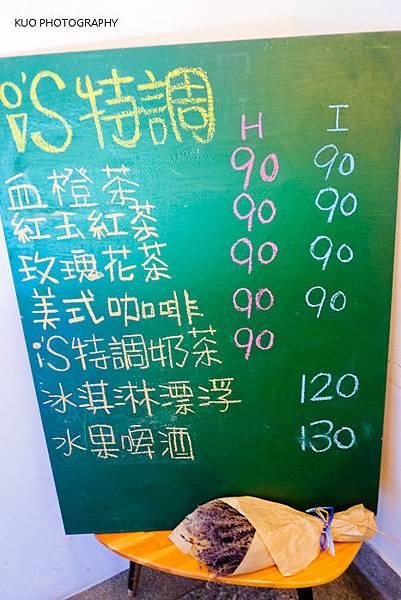 KUO PHOTOGRAPHY
iS特調
H I
血橙茶 90 90
紅玉紅茶 90 90
玫瑰花茶 90 90
美式咖啡 90 90
iS特調奶茶 90
冰淇淋漂浮 120
水果啤酒 130